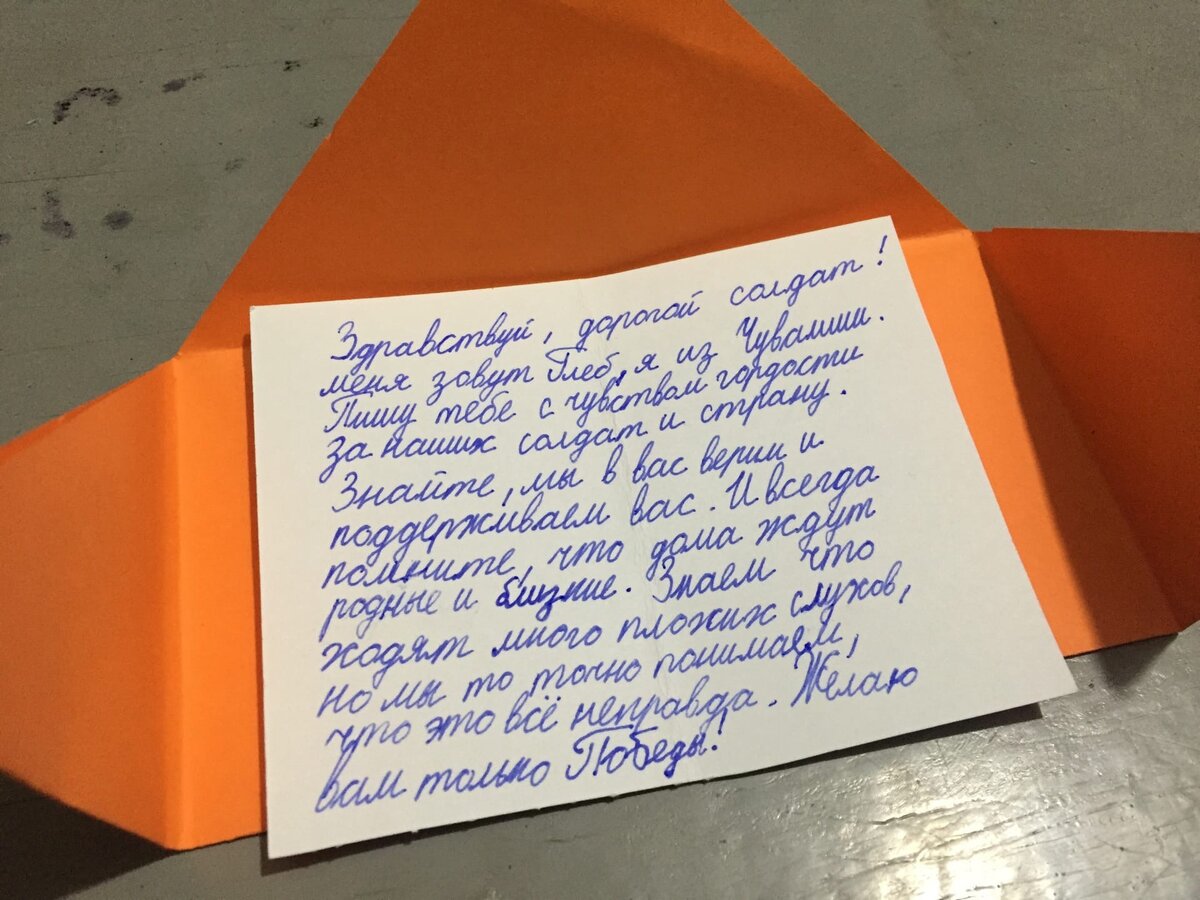 Здравствуй, дорогой солдат!
меня зовут Глеб, я из Чувашии.
Пишу тебе с чувством гордости
за наших солдат и страну.
Знайте, мы в вас верим и
поддерживаем вас. И всегда
помните, что дома ждут
родные и близкие. Знаем что
ходят много плохих слухов,
но мы то точно понимаем,
что это всё неправда. Желаю
вам только Победы!